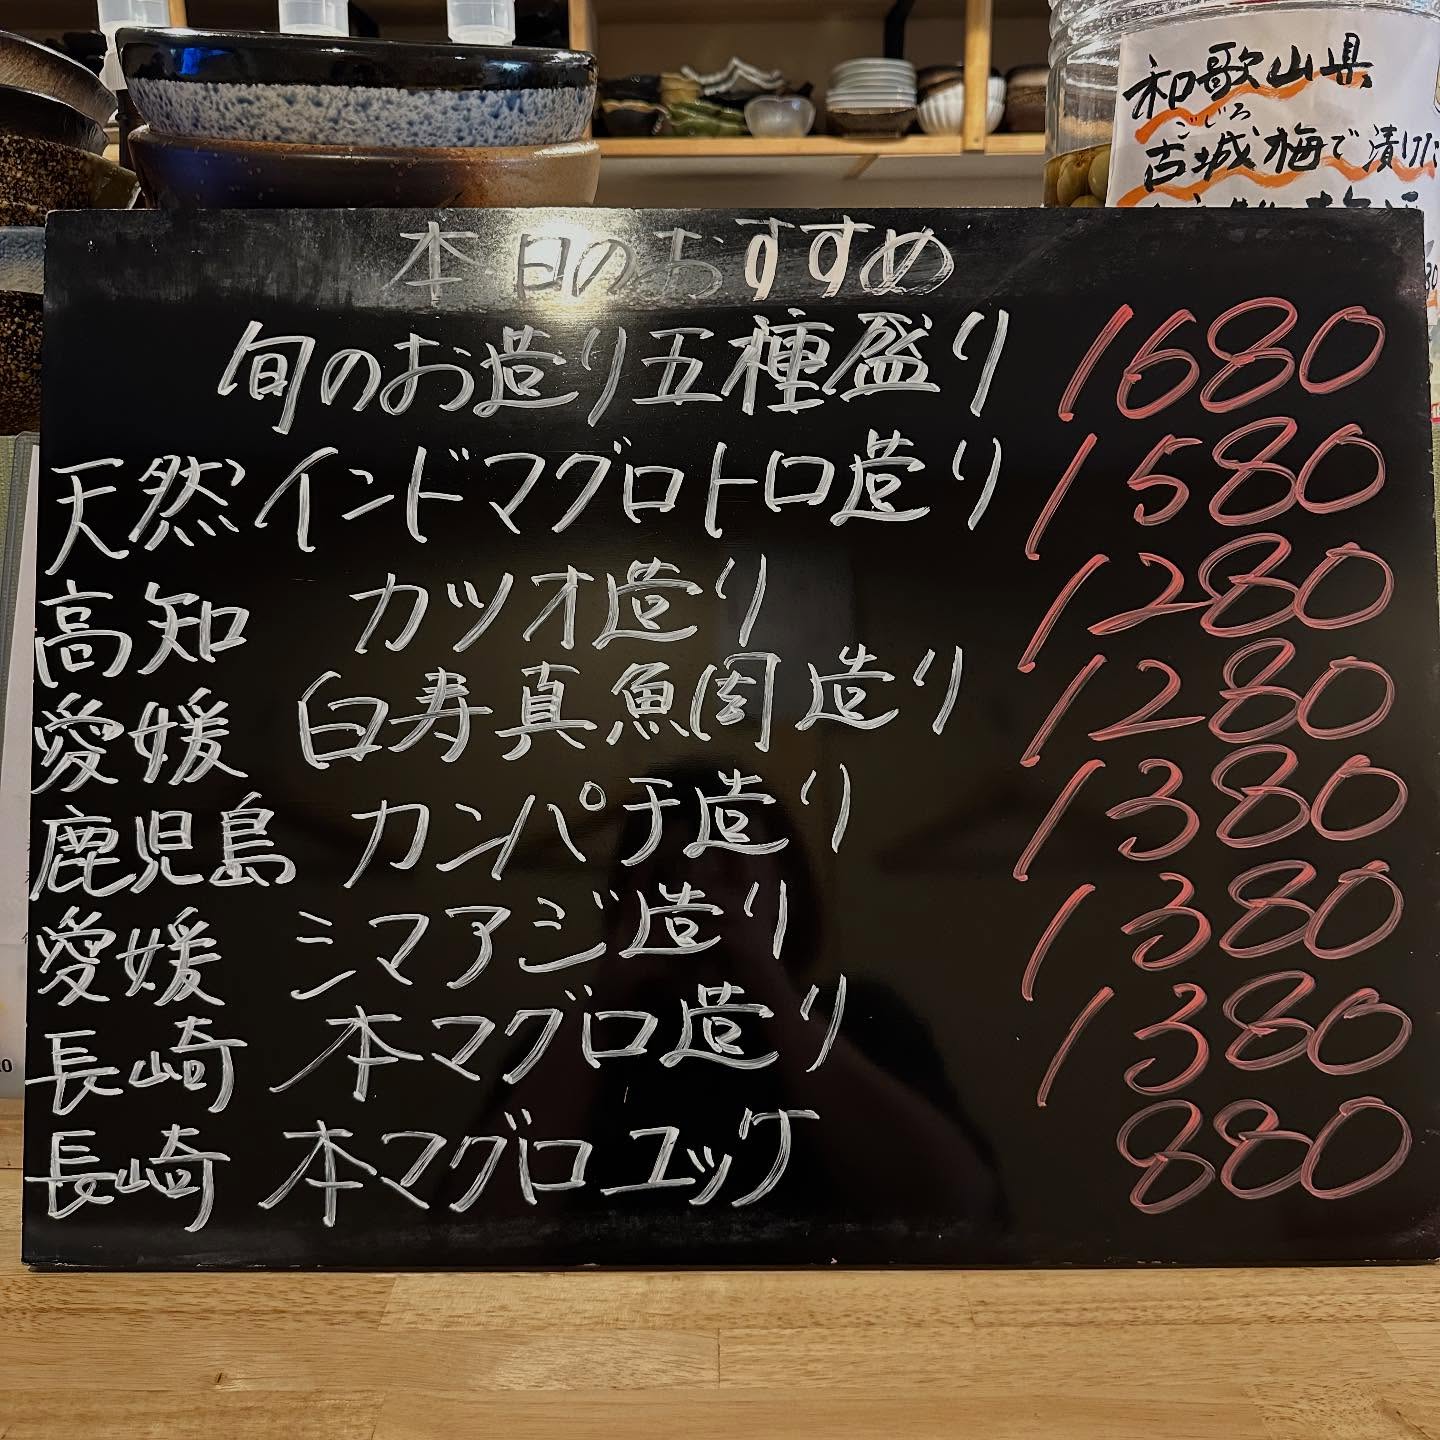 和歌山県
ごじろ
古城梅で漬けた
本日のおすすめ
旬のお造り五種盛り 1680
天然 インドマグロトロ造り 1580
高知 カツオ造り 1280
愛媛 白寿真鯛造り 1280
鹿児島 カンパチ造り 1380
愛媛 シマアジ造り 1380
長崎 本マグロ造り 1380
長崎 本マグロユッケ 880